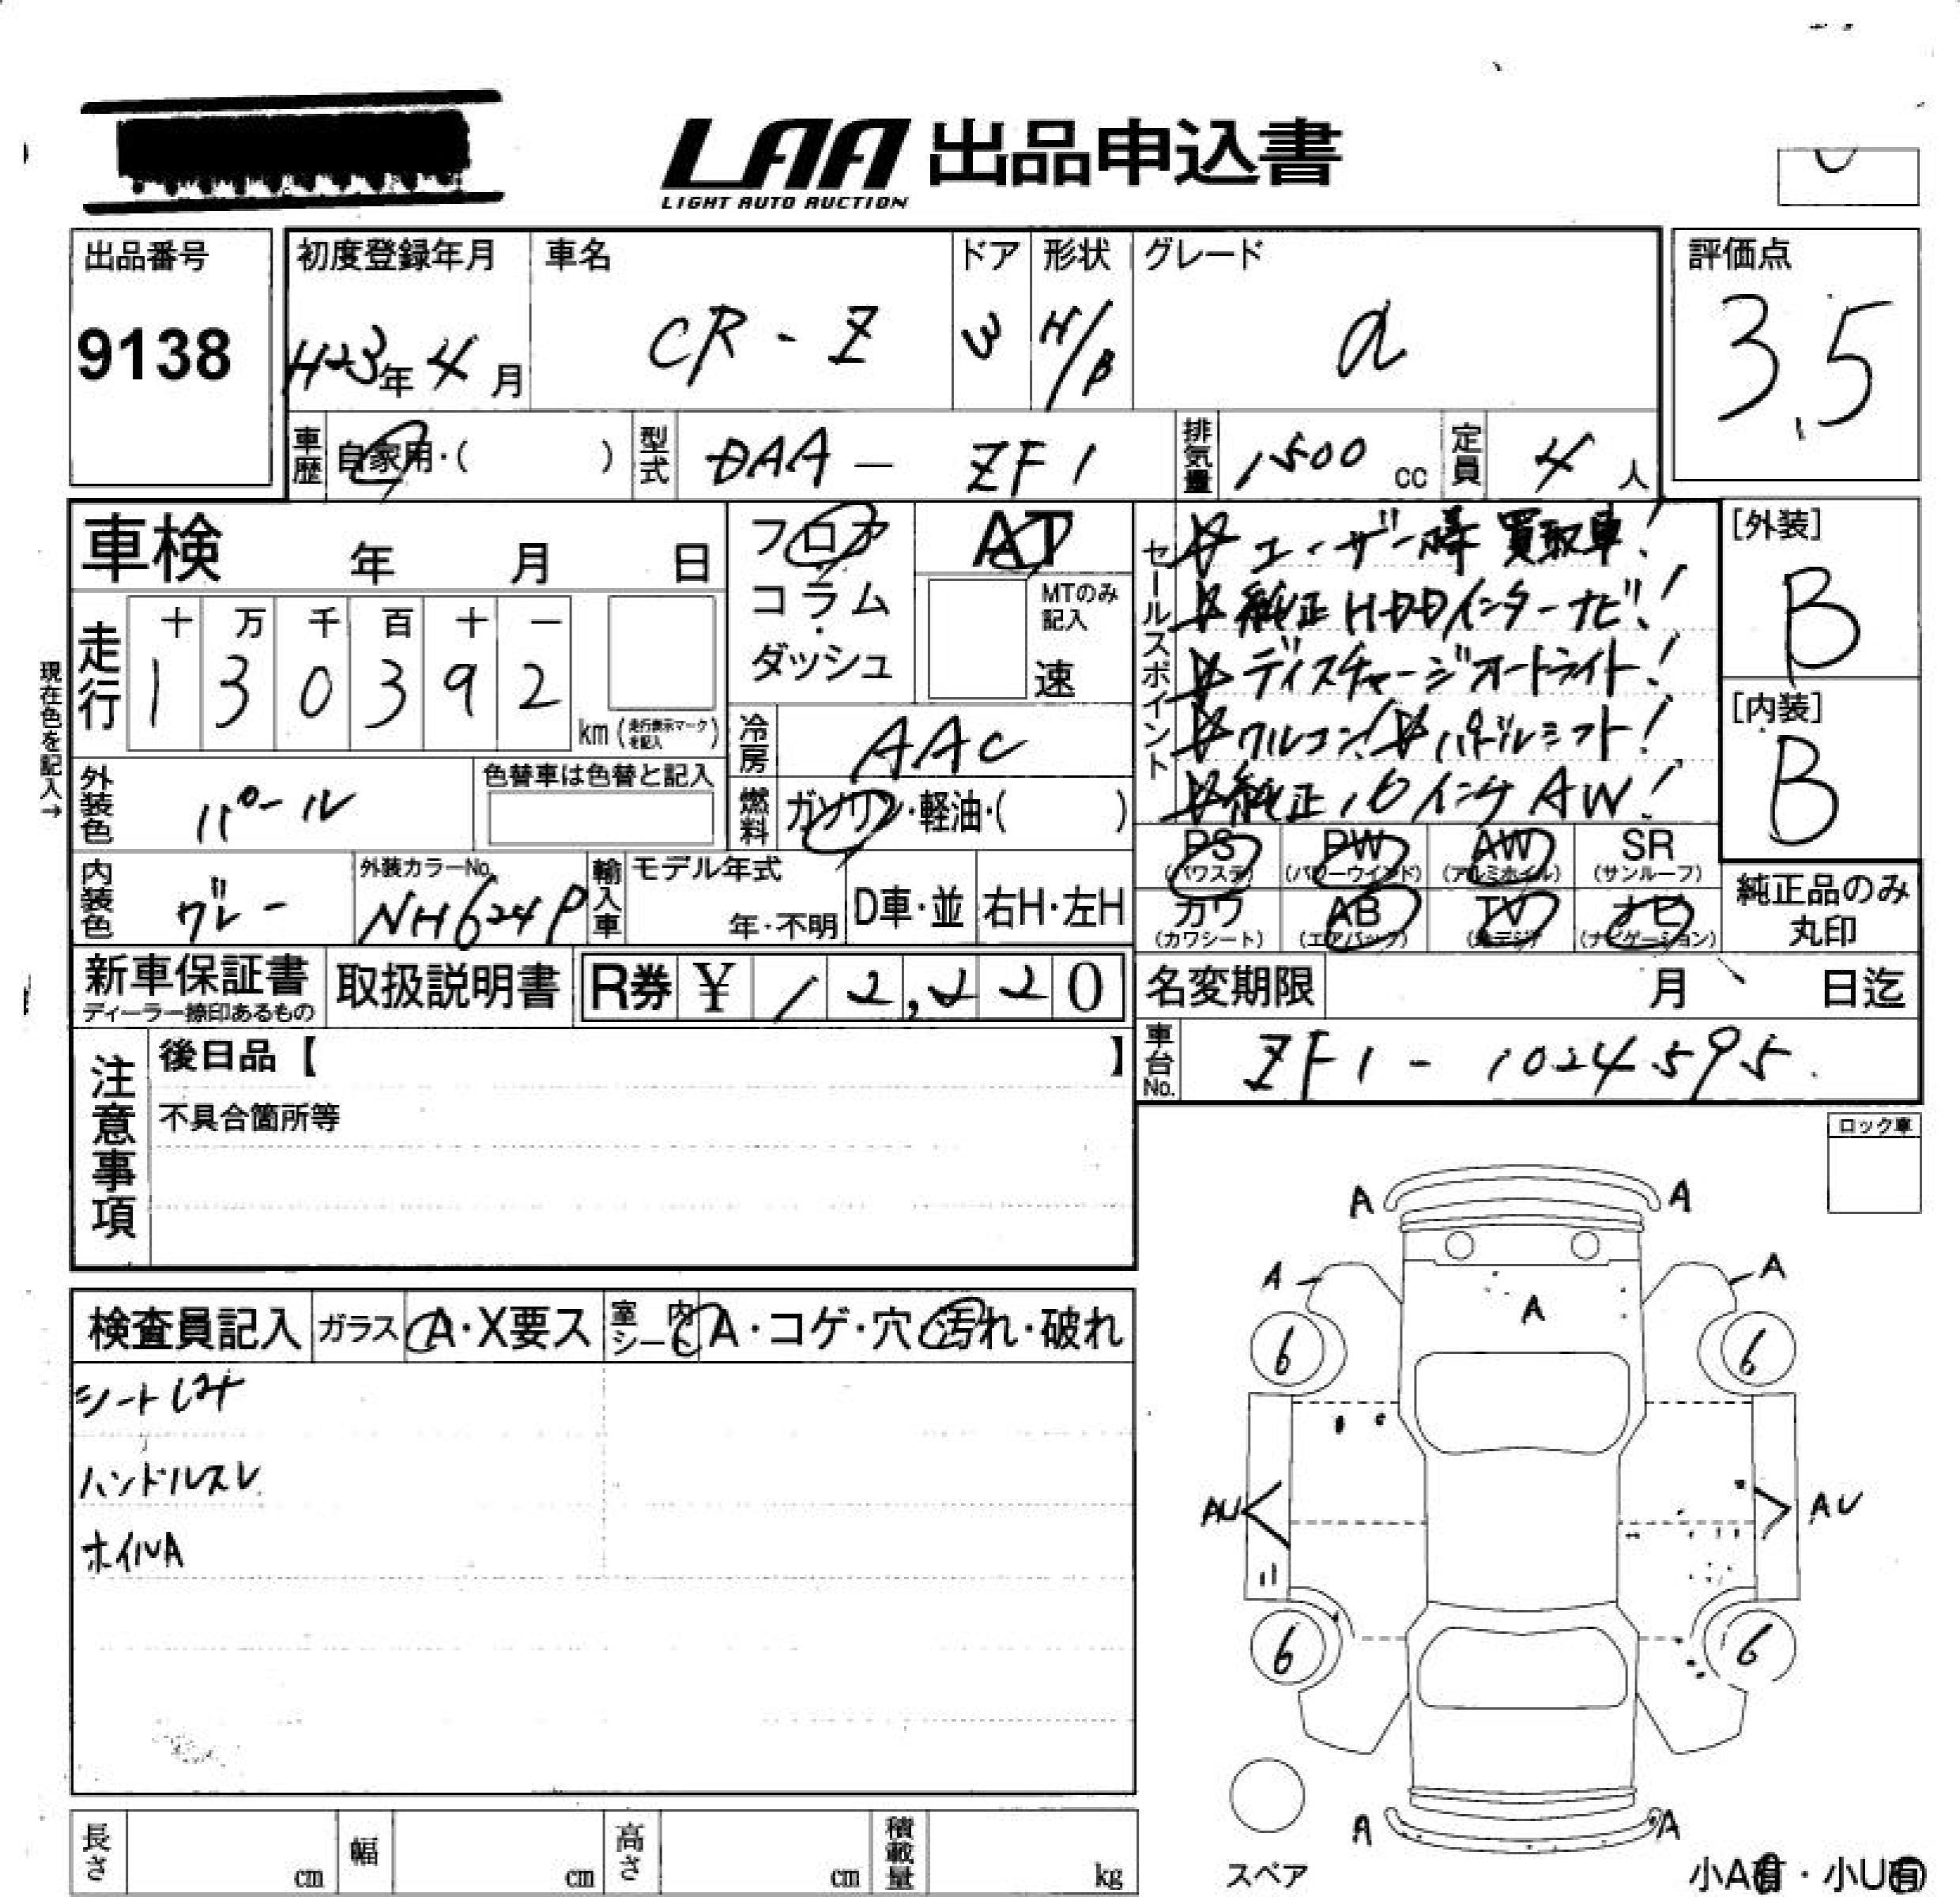 LAA 出品申込書
LIGHT AUTO AUCTION
出品番号
9138
初度登録年月
H23年4月
車名
CR-Z
ドア
3
形状
H/B
グレード
α
評価点
3.5
車歴
自家用・( )
型式
DAA-ZF1
排気量
1500 cc
定員
4人
車検 年 月 日
フロア
コラム・
ダッシュ
AT
MTのみ
記入
速
セールスポイント
☆ユーザー様買取車!
☆純正HDDインターナビ!
☆ディスチャージオートライト!
☆クルコン!☆パドルシフト!
☆純正16インチAW!
[外装]
B
[内装]
B
現在色を記入→
走行
十 万 千 百 十 一
1 3 0 3 9 2
km(走行表示マークを記入)
冷房
AAC
外装色
パール
色替車は色替と記入
燃料
ガソリン・軽油・( )
PS
(パワステ)
PW
(パワーウインド)
AW
(アルミホイル)
SR
(サンルーフ)
カワ
(カワシート)
AB
(エアバック)
TV
(地デジ)
ナビ
(ナビゲーション)
純正品のみ
丸印
内装色
グレー
外装カラーNo.
NH624P
輸入車
モデル年式
年・不明
D車・並
右H・左H
新車保証書
ディーラー捺印あるもの
取扱説明書
R券 ¥ 12,220
名変期限 月 日迄
車台No.
ZF1-1024595
注意事項
後日品【 】
不具合箇所等
ロック車
検査員記入
ガラス
A・X要ス
室内シート
A・コゲ・穴・汚れ・破れ
ハンドルスレ
ホイルA
A A
A A
A
6 6
AU AU
6 6
A A
スペア
小A有・小U有
長さ cm
幅 cm
高さ cm
積載量 kg